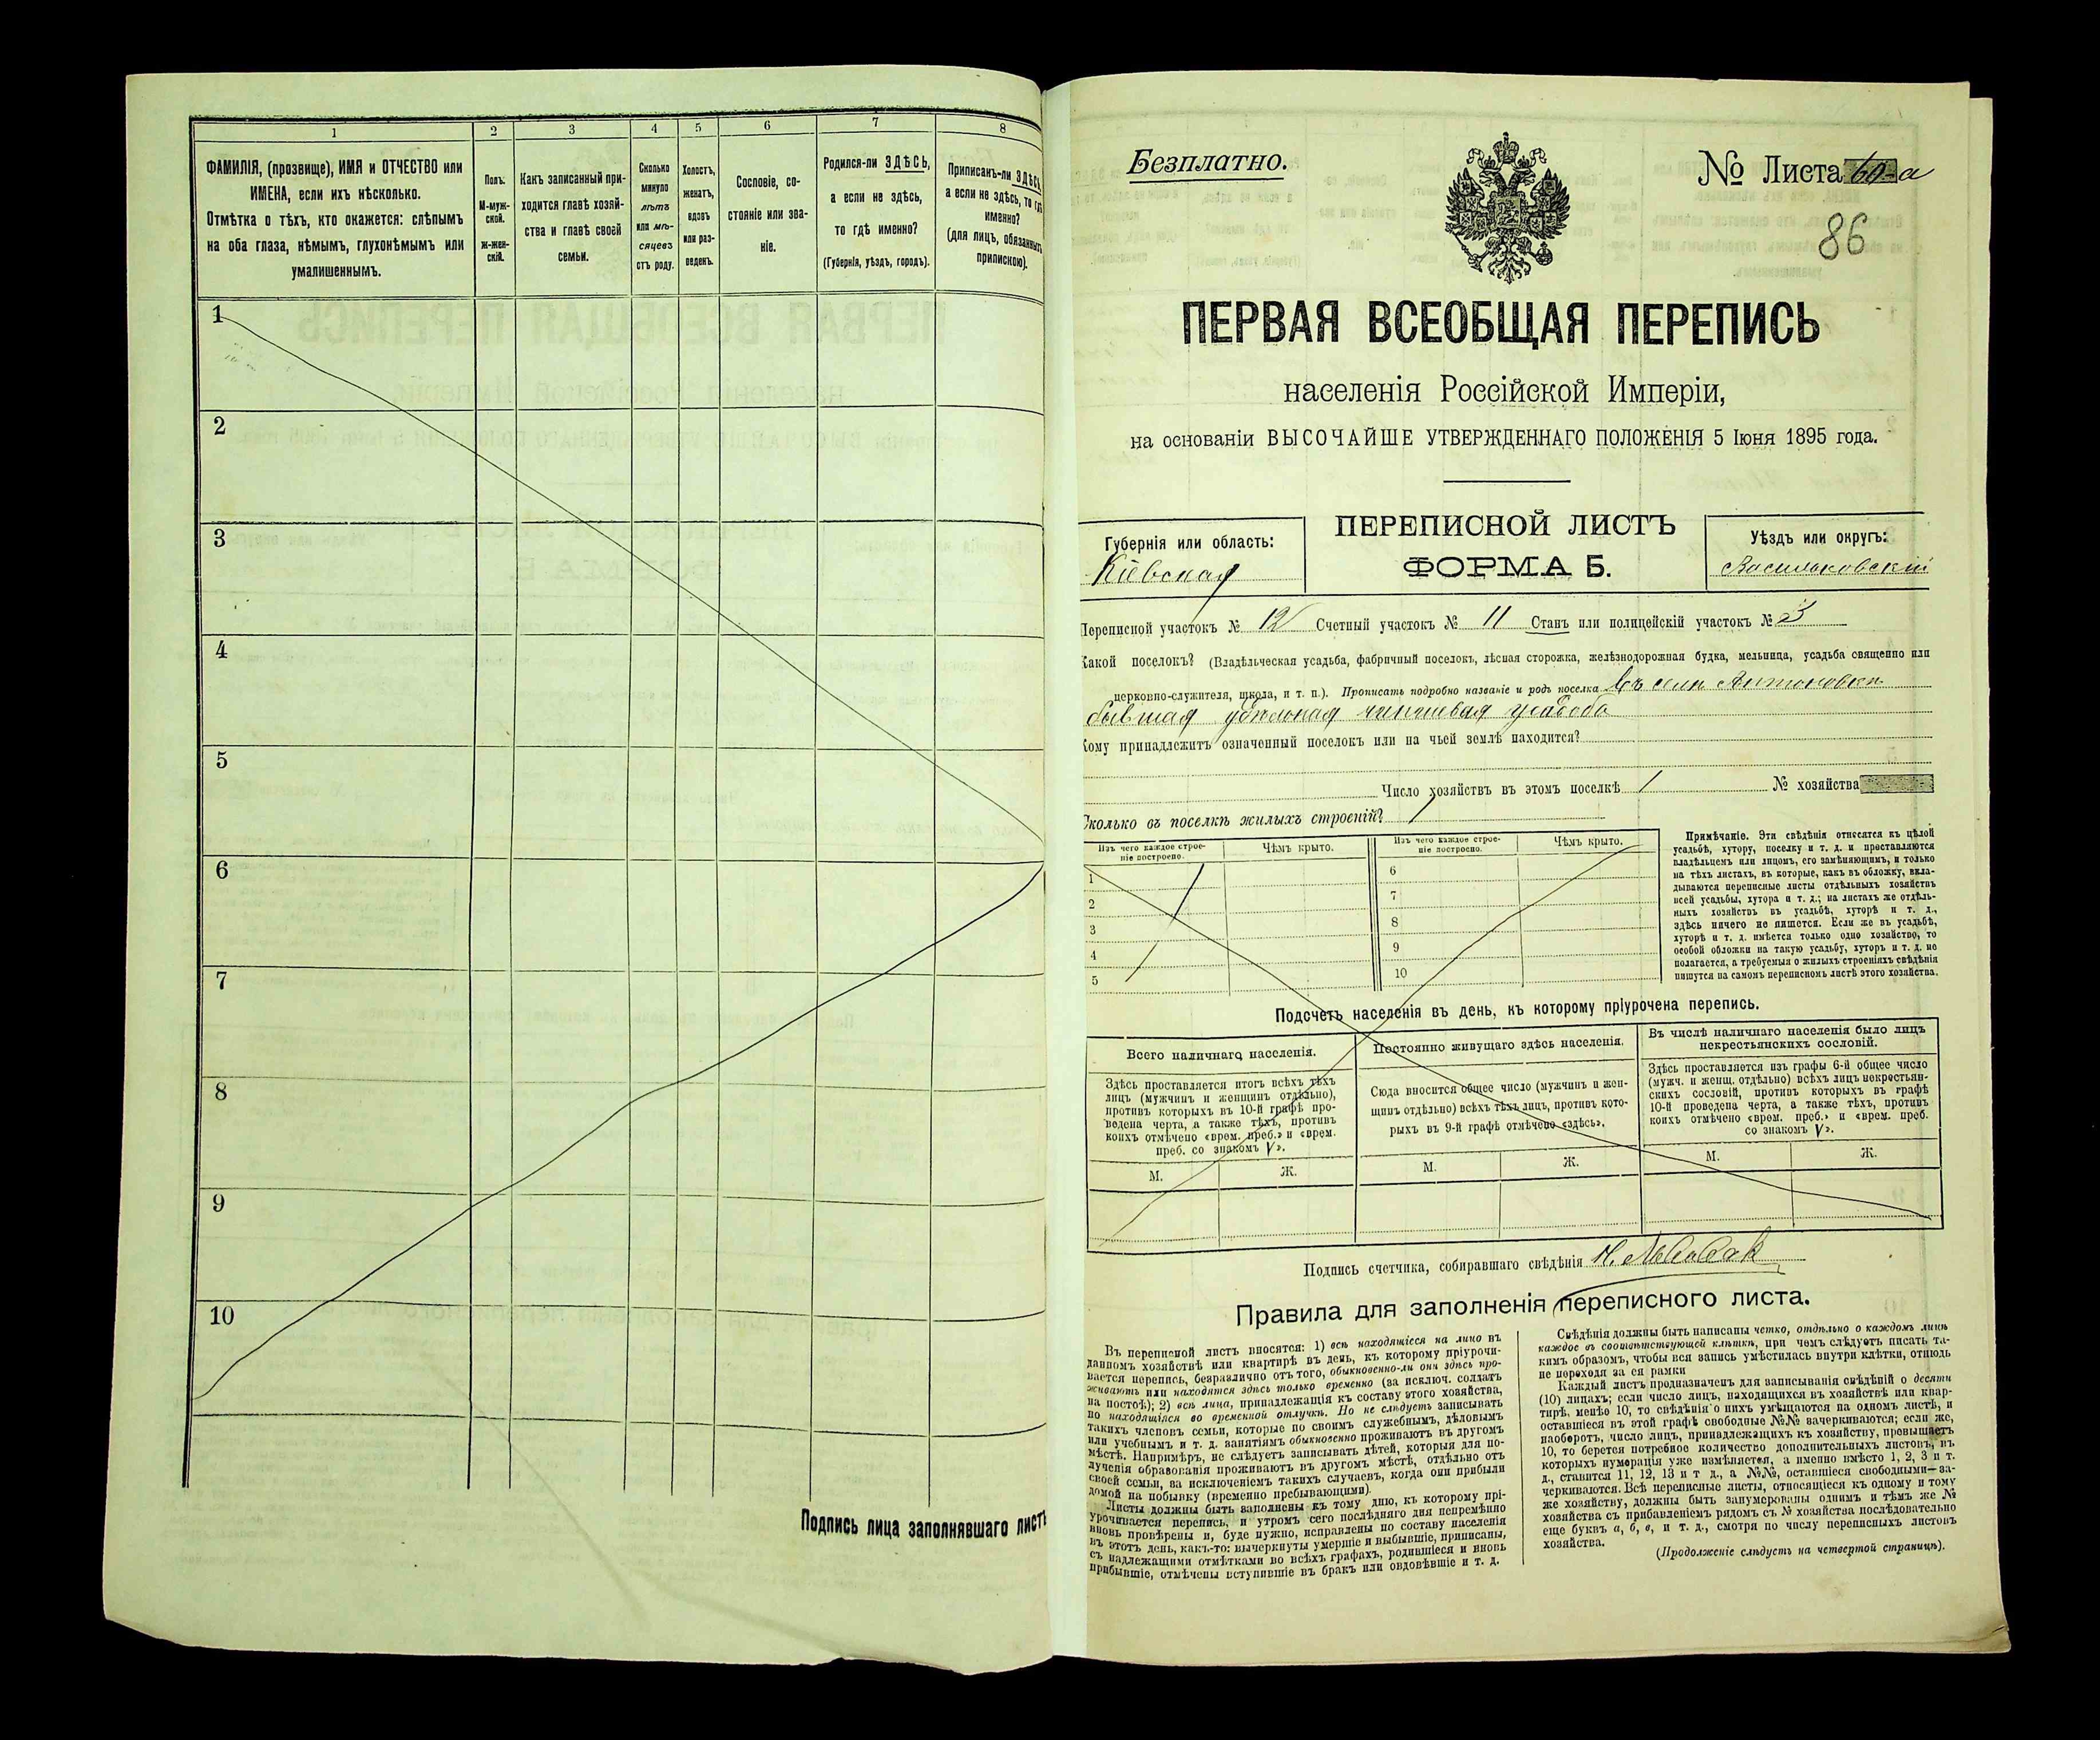 1
2
3
4
5
6
7
8
ФАМИЛІЯ, (прозвище), ИМЯ и ОТЧЕСТВО или
ИМЕНА, если ихъ нѣсколько.
Отмѣтка о тѣхъ, кто окажется: слѣпымъ
на оба глаза, нѣмымъ, глухонѣмымъ или
умалишеннымъ.
Полъ.
М-муж-
ской.
ж-жен-
скій.
Какъ записанный при-
ходится главѣ хозяй-
ства и главѣ своей
семьи.
Сколько
минуло
лѣтъ
или мѣ-
сяцевъ
отъ роду.
Холостъ,
женатъ,
вдовъ
или раз-
веденъ.
Сословіе, со-
стояніе или зва-
ніе.
Родился-ли ЗДѢСЬ,
а если не здѣсь,
то гдѣ именно?
(Губернія, уѣздъ, городъ).
Приписанъ-ли ЗДѢСЬ,
а если не здѣсь, то гдѣ
именно?
(для лицъ, обязанныхъ
припискою).
1
2
3
4
5
6
7
8
9
10
Подпись лица заполнявшаго листъ
Безплатно.
№ Листа 60-а
86
ПЕРВАЯ ВСЕОБЩАЯ ПЕРЕПИСЬ
населенія Россійской Имперіи,
на основаніи ВЫСОЧАЙШЕ УТВЕРЖДЕННАГО ПОЛОЖЕНІЯ 5 Іюня 1895 года.
Губернія или область:
Кіевская
ПЕРЕПИСНОЙ ЛИСТЪ
ФОРМА Б.
Уѣздъ или округъ:
Васильковскій
Переписной участокъ № 12 Счетный участокъ № 11 Станъ или полицейскій участокъ № 3
Какой поселокъ? (Владѣльческая усадьба, фабричный поселокъ, лѣсная сторожка, желѣзнодорожная будка, мельница, усадьба священно или
церковно-служителя, школа, и т. п.). Прописать подробно названіе и родъ поселка Въ селѣ Антоновкѣ
бывшая удѣльная чиншевая усадьба
Кому принадлежитъ означенный поселокъ или на чьей землѣ находится?
Число хозяйствъ въ этомъ поселкѣ 1 № хозяйства
Сколько въ поселкѣ жилыхъ строеній? 1
Изъ чего каждое строе-
ніе построено.
Чѣмъ крыто.
Изъ чего каждое строе-
ніе построено.
Чѣмъ крыто.
1
2
3
4
5
6
7
8
9
10
Примѣчаніе. Эти свѣдѣнія относятся къ цѣлой
усадьбѣ, хутору, поселку и т. д. и проставляются
владѣльцемъ или лицомъ, его замѣняющимъ, и только
на тѣхъ листахъ, въ которые, какъ въ обложку, вкла-
дываются переписные листы отдѣльныхъ хозяйствъ
всей усадьбы, хутора и т. д.; на листахъ же отдѣль-
ныхъ хозяйствъ въ усадьбѣ, хуторѣ и т. д.,
здѣсь ничего не пишется. Если же въ усадьбѣ,
хуторѣ и т. д. имѣется только одно хозяйство, то
особой обложки на такую усадьбу, хуторъ и т. д. не
полагается, а требуемыя о жилыхъ строеніяхъ свѣдѣнія
пишутся на самомъ переписномъ листѣ этого хозяйства.
Подсчетъ населенія въ день, къ которому пріурочена перепись.
Всего наличнаго населенія.
Здѣсь проставляется итогъ всѣхъ тѣхъ
лицъ (мужчинъ и женщинъ отдѣльно),
противъ которыхъ въ 10-й графѣ про-
ведена черта, а также тѣхъ, противъ
коихъ отмѣчено «врем. преб.» и «врем.
преб. со знакомъ V».
М.
Ж.
Постоянно живущаго здѣсь населенія.
Сюда вносится общее число (мужчинъ и жен-
щинъ отдѣльно) всѣхъ тѣхъ лицъ, противъ кото-
рыхъ въ 9-й графѣ отмѣчено «здѣсь».
М.
Ж.
Въ числѣ наличнаго населенія было лицъ
некрестьянскихъ сословій.
Здѣсь проставляется изъ графы 6-й общее число
(мужч. и женщ. отдѣльно) всѣхъ лицъ некрестьян-
скихъ сословій, противъ которыхъ въ графѣ
10-й проведена черта, а также тѣхъ, противъ
коихъ отмѣчено «врем. преб.» и «врем. преб.
со знакомъ V».
М.
Ж.
Подпись счетчика, собиравшаго свѣдѣнія
Правила для заполненія переписного листа.
Въ переписной листъ вносятся: 1) всѣ находящіеся на лицо въ
данномъ хозяйствѣ или квартирѣ въ день, къ которому пріурочи-
вается перепись, безразлично отъ того, обыкновенно-ли они здѣсь про-
живаютъ или находятся здѣсь только временно (за исключ. солдатъ
на постоѣ); 2) всѣ лица, принадлежащія къ составу этого хозяйства,
но находящіяся во временной отлучкѣ. Но не слѣдуетъ записывать
такихъ членовъ семьи, которые по своимъ служебнымъ, дѣловымъ
или учебнымъ и т. д. занятіямъ обыкновенно проживаютъ въ другомъ
мѣстѣ. Напримѣръ, не слѣдуетъ записывать дѣтей, которыя для по-
лученія образованія проживаютъ въ другомъ мѣстѣ, отдѣльно отъ
своей семьи, за исключеніемъ такихъ случаевъ, когда они прибыли
домой на побывку (временно пребывающими).
Листы должны быть заполнены къ тому дню, къ которому прі-
урочивается перепись, и утромъ сего послѣдняго дня непремѣнно
вновь провѣрены и, буде нужно, исправлены по составу населенія
въ этотъ день, какъ-то: вычеркнуты умершіе и выбывшіе, приписаны,
съ надлежащими отмѣтками во всѣхъ графахъ, родившіеся и вновь
прибывшіе, отмѣчены вступившіе въ бракъ или овдовѣвшіе и т. д.
Свѣдѣнія должны быть написаны четко, отдѣльно о каждомъ лицѣ
каждое въ соотвѣтствующей клѣткѣ, при чемъ слѣдуетъ писать та-
кимъ образомъ, чтобы вся запись умѣстилась внутри клѣтки, отнюдь
не переходя за ея рамки
Каждый листъ предназначенъ для записыванія свѣдѣній о десяти
(10) лицахъ; если число лицъ, находящихся въ хозяйствѣ или квар-
тирѣ, менѣе 10, то свѣдѣнія о нихъ умѣщаются на одномъ листѣ, и
оставшіеся въ этой графѣ свободные №№ вачеркиваются; если же,
наоборотъ, число лицъ, принадлежащихъ къ хозяйству, превышаетъ
10, то берется потребное количество дополнительныхъ листовъ, въ
которыхъ нумерація уже измѣняется, а именно вмѣсто 1, 2, 3 и т.
д., ставится 11, 12, 13 и т д., а №№, оставшіеся свободными—за-
черкиваются. Всѣ переписные листы, относящіеся къ одному и тому
же хозяйству, должны быть занумерованы однимъ и тѣмъ же №
хозяйства съ прибавленіемъ рядомъ съ № хозяйства послѣдовательно
еще буквъ а, б, в, и т. д., смотря по числу переписныхъ листовъ
хозяйства.
(Продолженіе слѣдуетъ на четвертой страницѣ).